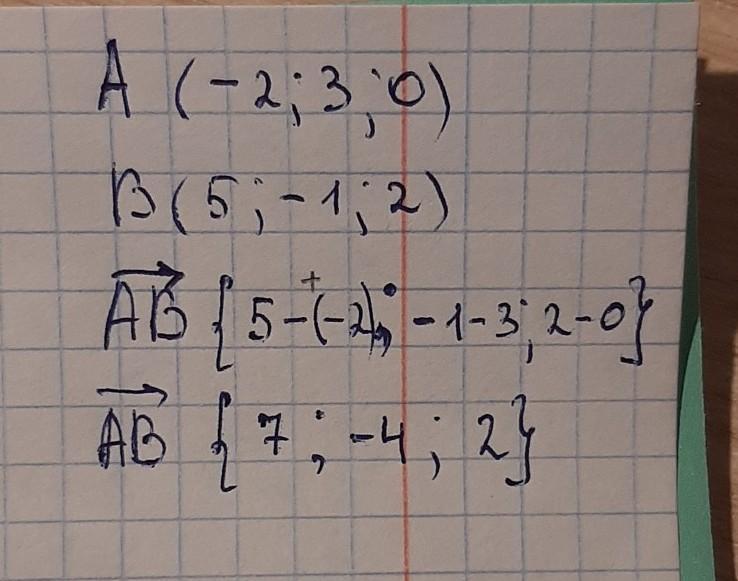 A (-2; 3; 0)
B (5; -1; 2)
AB {5-(-2); -1-3; 2-0}
AB {7; -4; 2}